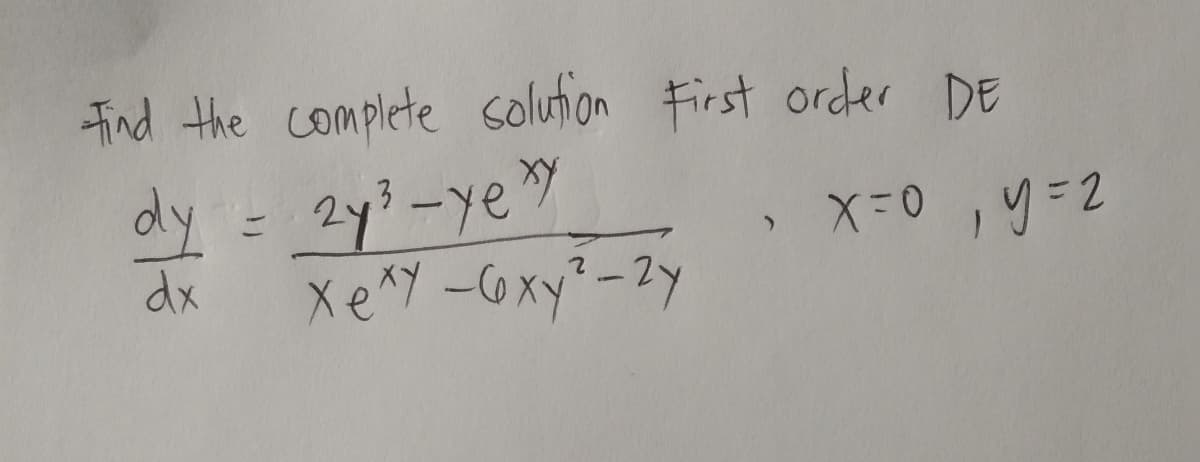 Find the complete solution First order DE
dy/dx = (2y³ - ye^xy)/(xe^xy - 6xy² - 2y) , x=0 , y=2